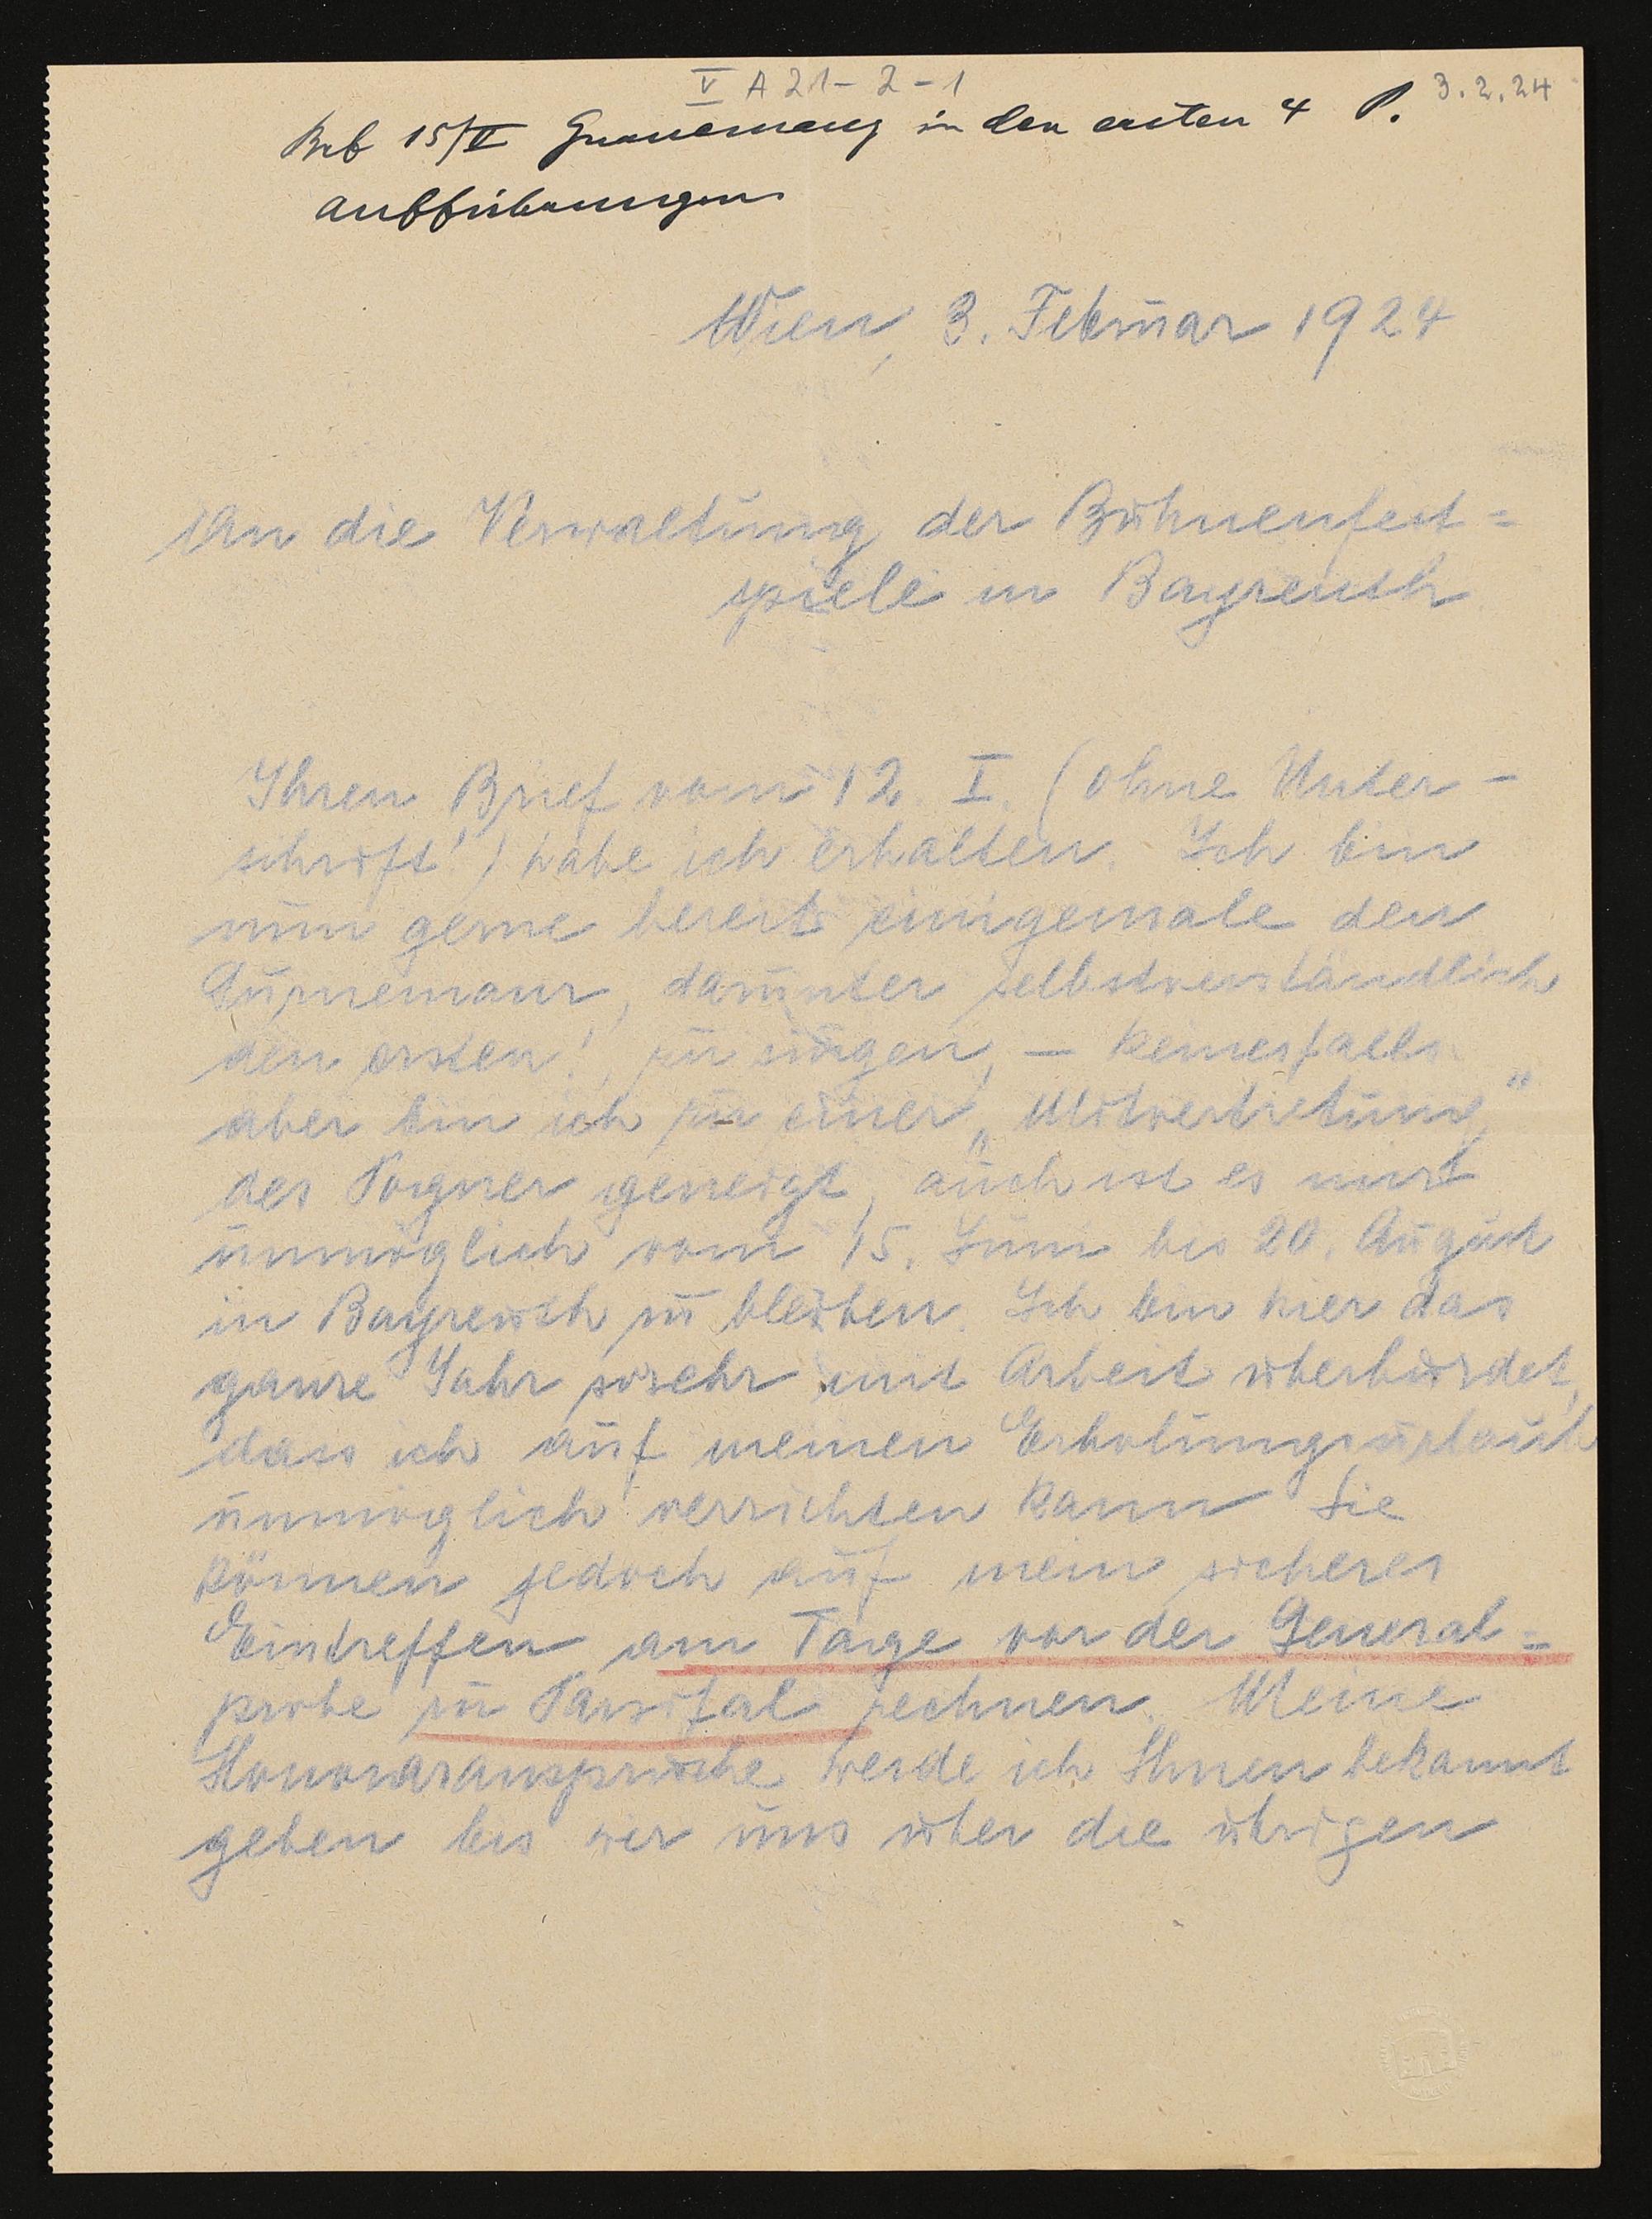 V A 21-2-1
3.2.24
15/II Gurnemanz in den ersten 4 P.
Aufführungen
Wien, 3. Februar 1924
An die Verwaltung der Bühnenfest=
spiele in Bayreuth
Ihren Brief vom 12. I. (ohne Unter-
schrift!) habe ich erhalten. Ich bin
nun gerne bereit einigemale den
Gurnemanz, darunter selbstverständlich
den ersten!, zu singen, – keinesfalls
aber bin ich zu einer „Mitvertretung"
des Pogner geneigt, auch ist es mir
unmöglich vom 15. Juni bis 20. August
in Bayreuth zu bleiben. Ich bin hier das
ganze Jahr sosehr mit Arbeit überbürdet,
dass ich auf meinen Erholungsurlaub
unmöglich verzichten kann. Sie
können jedoch auf mein sicheres
Eintreffen am Tage vor der General=
probe zu Parsifal rechnen. Meine
Honoraransprüche werde ich Ihnen bekannt
geben bis wir uns über die übrigen